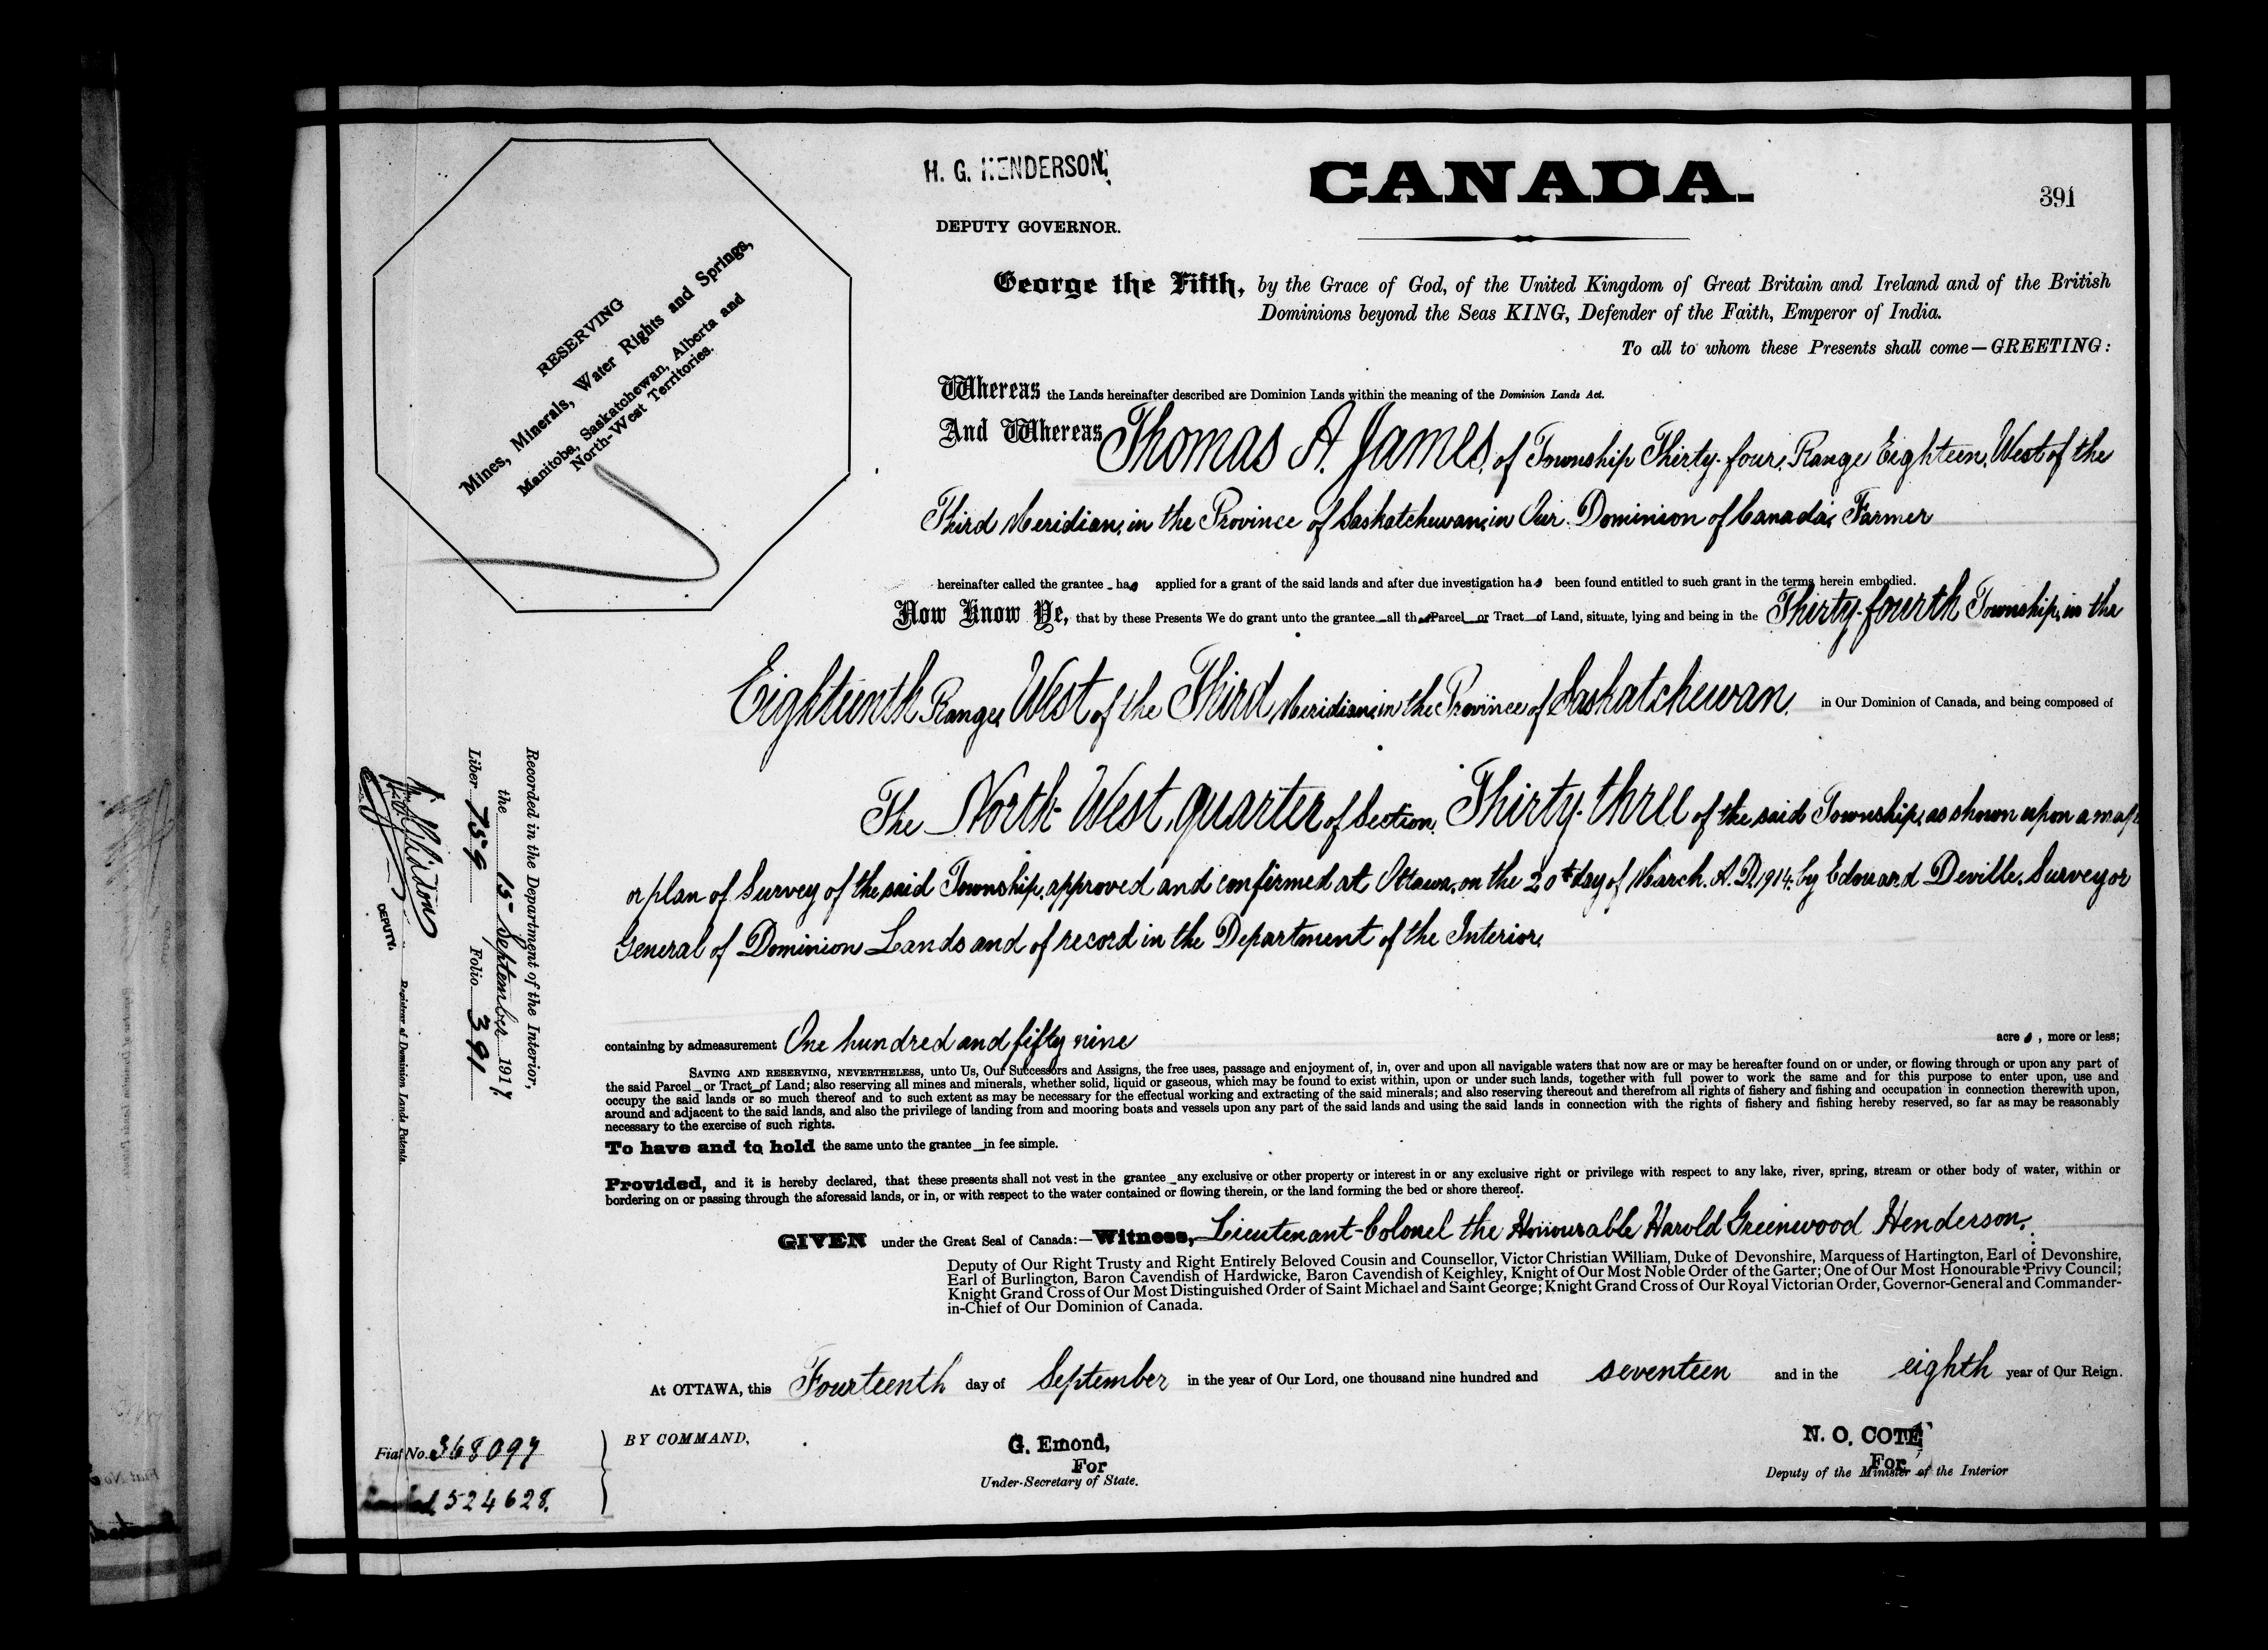 H. G. HENDERSON,
DEPUTY GOVERNOR.
CANADA.
391
RESERVING
Mines, Minerals, Water Rights and Springs,
Manitoba, Saskatchewan, Alberta and
North-West Territories.
George the Fifth, by the Grace of God, of the United Kingdom of Great Britain and Ireland and of the British
Dominions beyond the Seas KING, Defender of the Faith, Emperor of India.
To all to whom these Presents shall come—GREETING:
Whereas the Lands hereinafter described are Dominion Lands within the meaning of the Dominion Lands Act.
And Whereas Thomas A. James, of Township Thirty-four, Range Eighteen, West of the
Third Meridian, in the Province of Saskatchewan, in Our Dominion of Canada, Farmer
hereinafter called the grantee has applied for a grant of the said lands and after due investigation has been found entitled to such grant in the terms herein embodied.
Now Know Ye, that by these Presents We do grant unto the grantee all that Parcel or Tract of Land, situate, lying and being in the Thirty-fourth Township, in the
Eighteenth Range, West of the Third Meridian, in the Province of Saskatchewan, in Our Dominion of Canada, and being composed of
The North-West quarter of Section Thirty-three of the said Township, as shown upon a map
or plan of Survey of the said Township, approved and confirmed at Ottawa, on the 20th day of March, A.D. 1914, by Edouard Deville, Surveyor
General of Dominion Lands and of record in the Department of the Interior,
containing by admeasurement One hundred and fifty nine acres, more or less;
SAVING AND RESERVING, NEVERTHELESS, unto Us, Our Successors and Assigns, the free uses, passage and enjoyment of, in, over and upon all navigable waters that now are or may be hereafter found on or under, or flowing through or upon any part of
the said Parcel or Tract of Land; also reserving all mines and minerals, whether solid, liquid or gaseous, which may be found to exist within, upon or under such lands, together with full power to work the same and for this purpose to enter upon, use and
occupy the said lands or so much thereof and to such extent as may be necessary for the effectual working and extracting of the said minerals; and also reserving thereout and therefrom all rights of fishery and fishing and occupation in connection therewith upon,
around and adjacent to the said lands, and also the privilege of landing from and mooring boats and vessels upon any part of the said lands and using the said lands in connection with the rights of fishery and fishing hereby reserved, so far as may be reasonably
necessary to the exercise of such rights.
To have and to hold the same unto the grantee in fee simple.
Provided, and it is hereby declared, that these presents shall not vest in the grantee any exclusive or other property or interest in or any exclusive right or privilege with respect to any lake, river, spring, stream or other body of water, within or
bordering on or passing through the aforesaid lands, or in, or with respect to the water contained or flowing therein, or the land forming the bed or shore thereof.
GIVEN under the Great Seal of Canada:—Witness, Lieutenant-Colonel the Honourable Harold Greenwood Henderson,
Deputy of Our Right Trusty and Right Entirely Beloved Cousin and Counsellor, Victor Christian William, Duke of Devonshire, Marquess of Hartington, Earl of Devonshire,
Earl of Burlington, Baron Cavendish of Hardwicke, Baron Cavendish of Keighley, Knight of Our Most Noble Order of the Garter; One of Our Most Honourable Privy Council;
Knight Grand Cross of Our Most Distinguished Order of Saint Michael and Saint George; Knight Grand Cross of Our Royal Victorian Order, Governor-General and Commander-
in-Chief of Our Dominion of Canada.
At OTTAWA, this Fourteenth day of September in the year of Our Lord, one thousand nine hundred and seventeen and in the eighth year of Our Reign.
BY COMMAND,
G. Emond,
For
Under-Secretary of State.
N. O. COTÉ
For
Deputy of the Minister of the Interior
Recorded in the Department of the Interior,
the 15 September 1917
Liber 759 Folio 391
DEPUTY.
Registrar of Dominion Lands Patents.
Fiat No. 368097
524628.